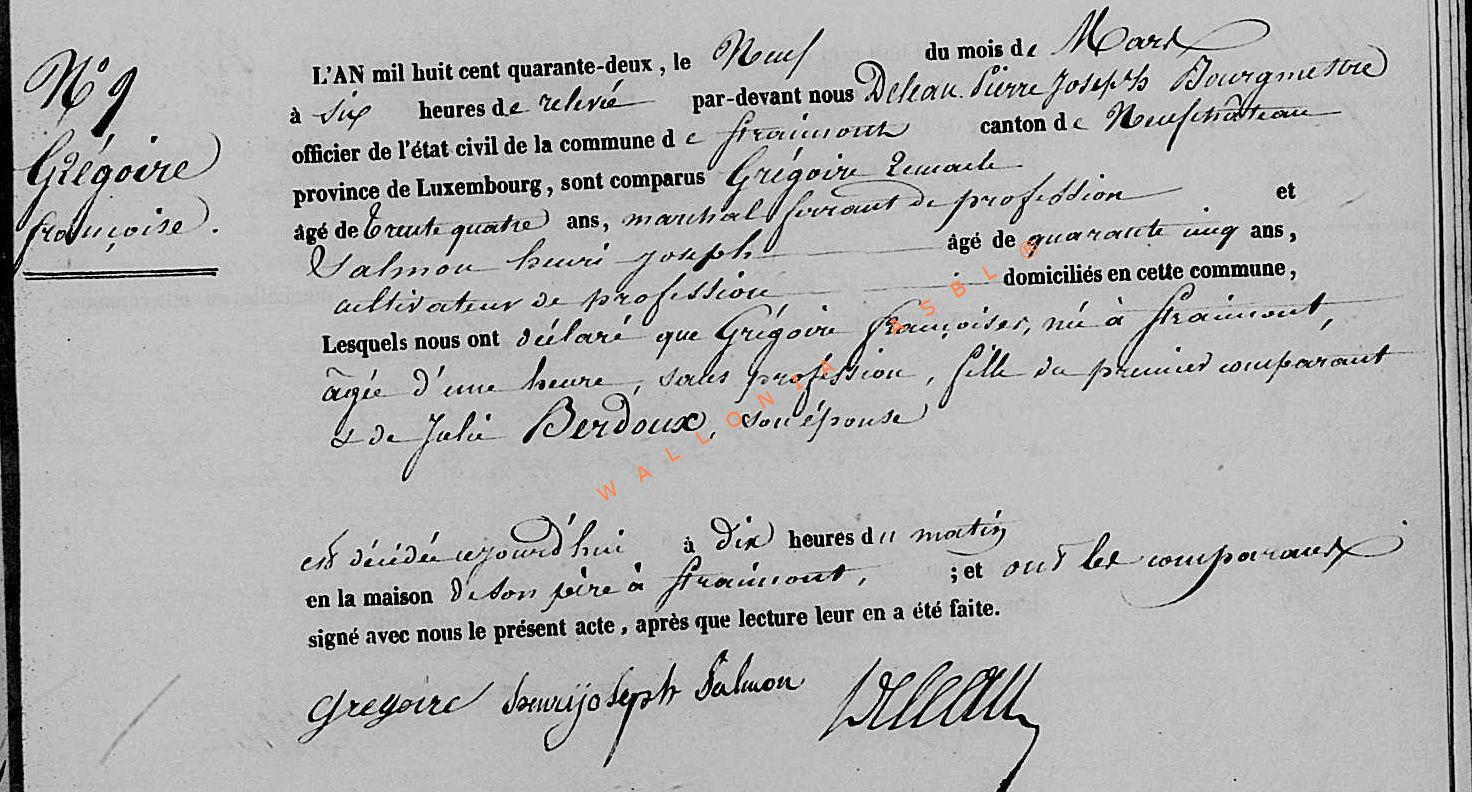 N° 9
Grégoire
françoise.
L'AN mil huit cent quarante-deux, le Neuf du mois de Mars
à six heures de relevée par-devant nous Deleau Pierre Joseph Bourgmestre
officier de l'état civil de la commune de Straimont canton de Neufchâteau
province de Luxembourg, sont comparus Grégoire
âgé de trente quatre ans, marchal ferrant de profession et
Salmon henri joseph âgé de quarante cinq ans,
cultivateur de profession domiciliés en cette commune,
Lesquels nous ont déclaré que Grégoire françoise, née à Straimont,
âgée d'une heure, sans profession, fille du premier comparant
& de Julie Berdoux, son épouse
est décédée cejourd'hui à Dix heures du matin
en la maison de son père à Straimont, ; et ont les comparants
signé avec nous le présent acte, après que lecture leur en a été faite.
Gregoire henrijoseph Salmon Deleau
WALLONIA ASBL ©